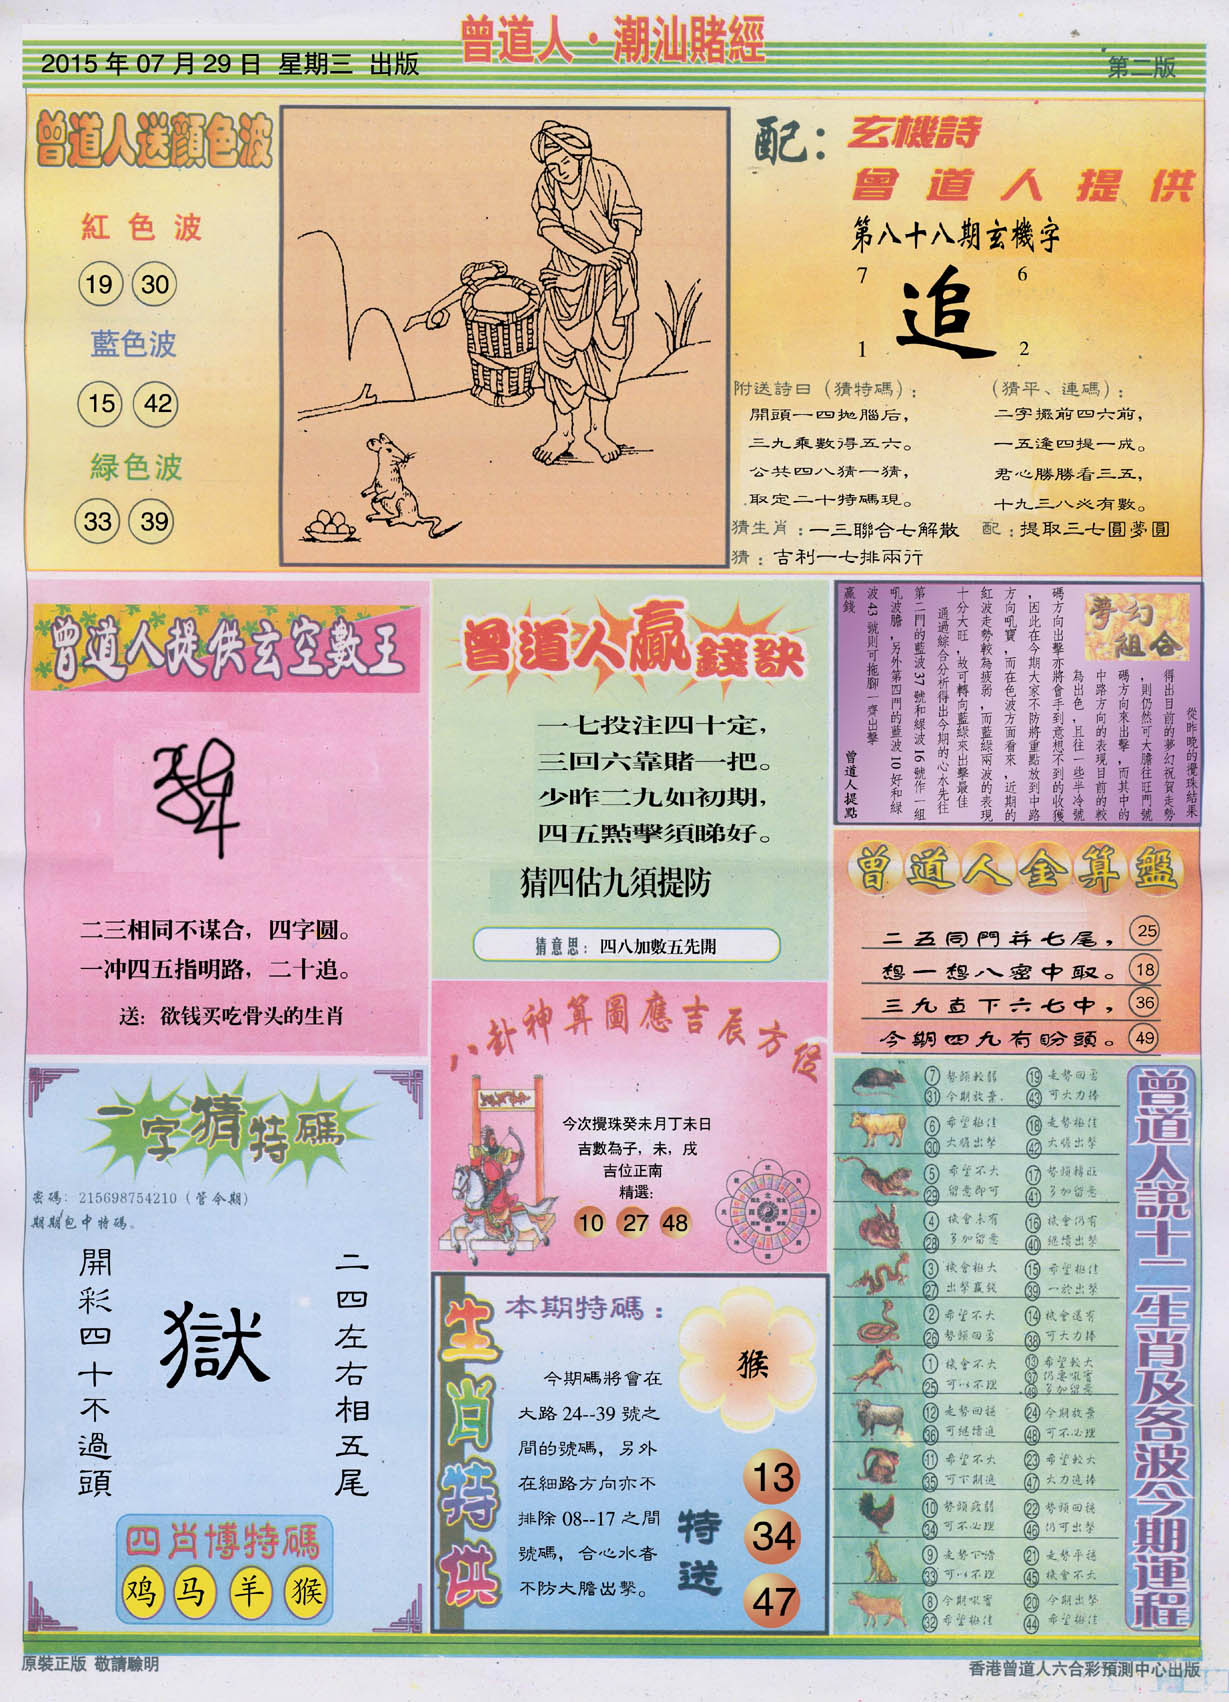 曾道人·潮汕賭經
2015年07月29日 星期三 出版
第二版
曾道人送顏色波
紅色波
19 30
藍色波
15 42
綠色波
33 39
配：玄機詩
曾道人提供
第八十八期玄機字
7 6
追
1 2
附送詩曰（猜特碼）：
開頭一四拋腦后，
三九乘數得五六。
公共四八猜一猜，
取定二十特碼現。
（猜平、連碼）：
二字擺前四六前，
一五逢四提一成。
君心勝勝看三五，
十九三八必有數。
猜生肖：一三聯合七解散
配：提取三七圓夢圓
猜：吉利一七排兩行
曾道人提供玄空數王
二三相同不谋合，四字圆。
一冲四五指明路，二十追。
送：欲钱买吃骨头的生肖
曾道人贏錢訣
一七投注四十定，
三回六靠賭一把。
少昨二九如初期，
四五點擊須睇好。
猜四估九須提防
猜意思：四八加數五先開
夢幻
組合
從昨晚的攪珠結果
得出目前的夢幻祝賀走勢
，則仍然可大膽往旺門號
碼方向來出擊，而其中的
中路方向的表現目前的較
為出色，且往一些半冷號
碼方向出擊亦將會手到意想不到的收獲
，因此在今期大家不防將重點放到中路
方向吼寶，而在色波方面看來，近期的
紅波走勢較為疲弱，而藍綠兩波的表現
十分大旺，故可轉向藍綠來出擊最佳
通過綜合分析得出今期的心水先往
第二門的藍波37號和綠波16號作一組
吼波膽，另外第四門的藍波10好和綠
波43號則可拖腳一齊出擊
贏錢
曾道人提點
曾道人金算盤
二五同門并七尾， 25
想一想八密中取。 18
三九直下六七中， 36
今期四九有盼頭。 49
八卦神算圖應吉辰方位
今次攪珠癸未月丁未日
吉數為子，未，戌
吉位正南
精選：
10 27 48
一字猜特碼
密碼：215698754210（管今期）
期期包中特碼。
開彩四十不過頭
獄
二四左右相五尾
四肖博特碼
鸡 马 羊 猴
生肖特供
本期特碼：
猴
今期碼將會在
大路24--39號之
間的號碼，另外
在細路方向亦不
排除08--17之間
號碼，合心水者
不防大膽出擊。
特送
13
34
47
曾道人說十二生肖及各波今期運程
7 勢頭較弱 19 走勢回勇
31 今期放棄 43 可大力捧
6 希望極佳 18 走勢極佳
30 大膽出擊 42 大膽出擊
5 希望不大 17 勢頭轉旺
29 留意即可 41 多加留意
4 機會未有 16 機會仍有
28 多加留意 40 繼續出擊
3 機會極大 15 希望極佳
27 出擊贏錢 39 一於出擊
2 希望不大 14 機會還有
26 勢頭回勇 38 可大力捧
1 機會不大 13 希望較大
25 可以不理 37 仍要吼實
49 多加留意
12 走勢回穩 24 今期放棄
36 可繼續追 48 可不必理
11 希望不大 23 希望較大
35 可下期追 47 大力追捧
10 勢頭疲弱 22 勢頭回穩
34 可不必理 46 仍可出擊
9 走勢下滑 21 走勢平穩
33 可以不理 45 機會不大
8 今期吼實 20 今期出擊
32 希望極佳 44 希望極佳
原裝正版 敬請驗明
香港曾道人六合彩預測中心出版